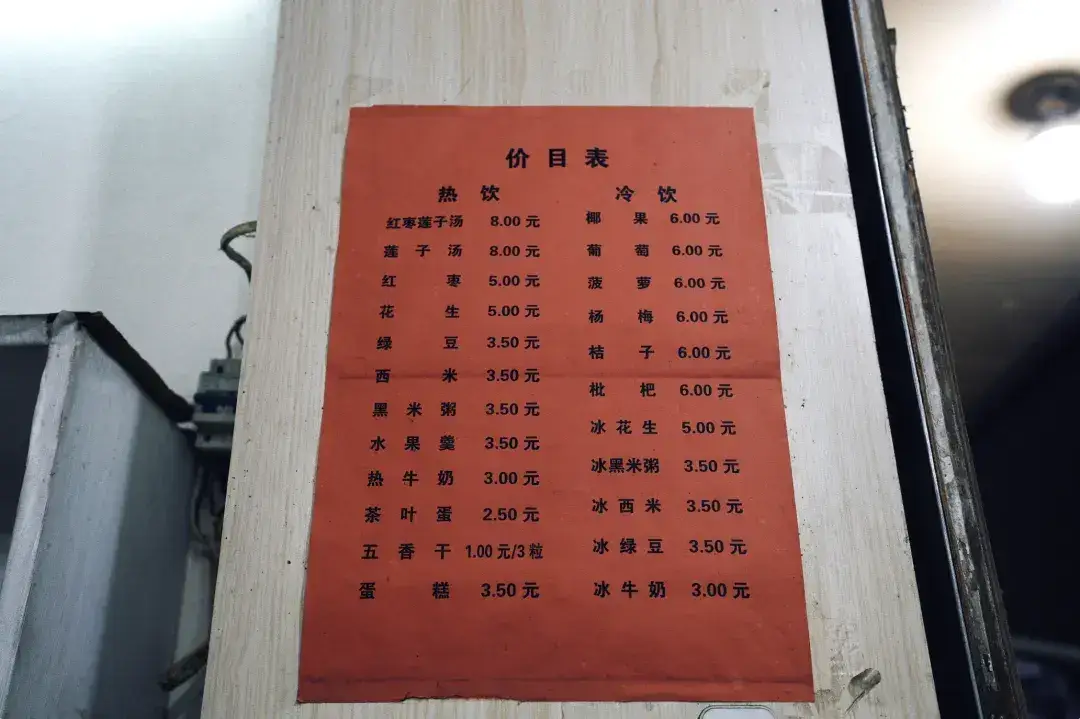 价目表
热饮
红枣莲子汤 8.00 元
莲子汤 8.00 元
红枣 5.00 元
花生 5.00 元
绿豆 3.50 元
西米 3.50 元
黑米粥 3.50 元
水果羹 3.50 元
热牛奶 3.00 元
茶叶蛋 2.50 元
五香干 1.00 元/3 粒
蛋糕 3.50 元
冷饮
椰果 6.00 元
葡萄 6.00 元
菠萝 6.00 元
杨梅 6.00 元
桔子 6.00 元
枇杷 6.00 元
冰花生 5.00 元
冰黑米粥 3.50 元
冰西米 3.50 元
冰绿豆 3.50 元
冰牛奶 3.00 元